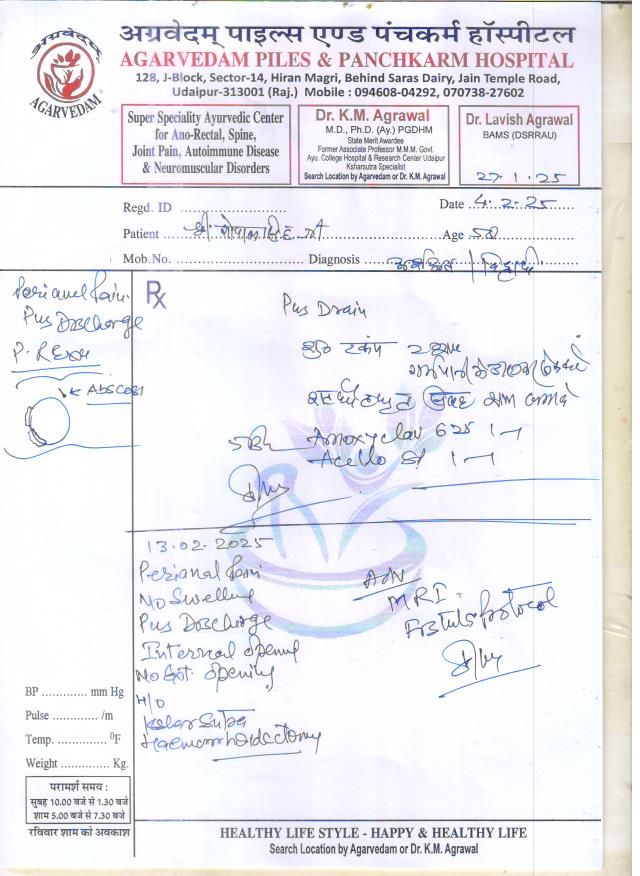 अग्रवेदम् पाइल्स एण्ड पंचकर्म हॉस्पीटल
AGARVEDAM PILES & PANCHKARM HOSPITAL
128, J-Block, Sector-14, Hiran Magri, Behind Saras Dairy, Jain Temple Road,
Udaipur-313001 (Raj.) Mobile : 094608-04292, 070738-27602
अग्रवेदम्
AGARVEDAM
Super Speciality Ayurvedic Center
for Ano-Rectal, Spine,
Joint Pain, Autoimmune Disease
& Neuromuscular Disorders
Dr. K.M. Agrawal
M.D., Ph.D. (Ay.) PGDHM
State Merit Awardee
Former Associate Professor M.M.M. Govt.
Ayu. College Hospital & Research Center Udaipur
Ksharsutra Specialist
Search Location by Agarvedam or Dr. K.M. Agrawal
Dr. Lavish Agrawal
BAMS (DSRRAU)
27.1.25
Regd. ID
Date 4.2.25
Patient श्री
Age 58
Mob.No. Diagnosis
Perianal Pain
Pus Discharge
Abscess
Rx
Pus Drain
Amoxyclav 625 1-1
1-1
13.02.2025
Perianal Pain
No Swelling
Pus Discharge
Internal opening
No Ext. opening
H/O
Kshar Sutra
Haemorrhoidectomy
Adv
MRI
Fistula Protocol
BP mm Hg
Pulse /m
Temp. °F
Weight Kg.
परामर्श समय :
सुबह 10.00 बजे से 1.30 बजे
शाम 5.00 बजे से 7.30 बजे
रविवार शाम को अवकाश
HEALTHY LIFE STYLE - HAPPY & HEALTHY LIFE
Search Location by Agarvedam or Dr. K.M. Agrawal